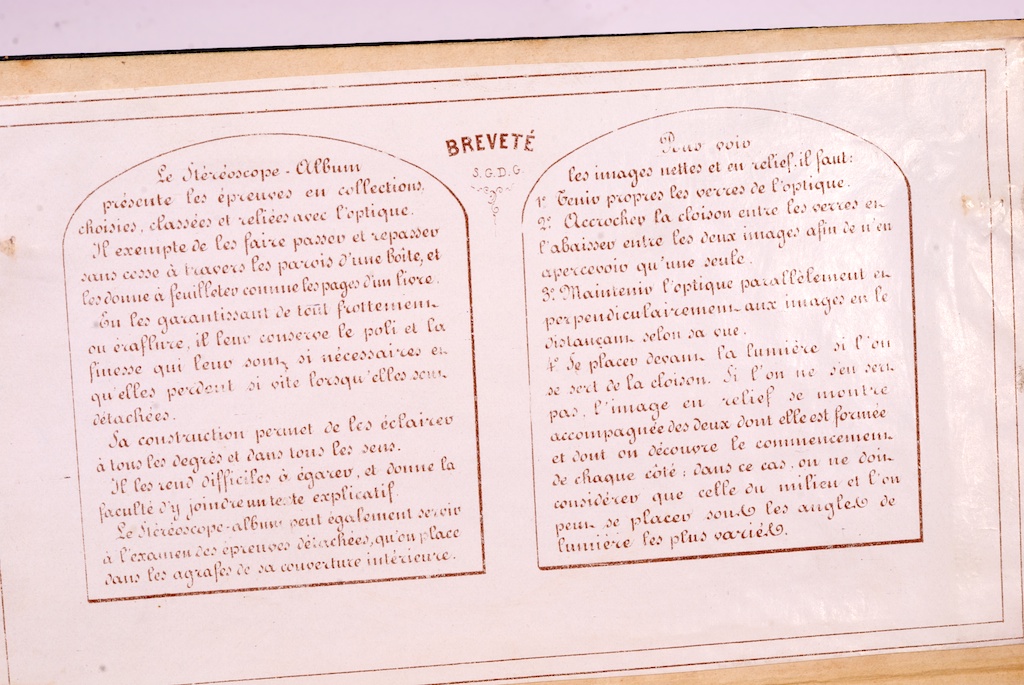 BREVETÉ
S. G. D. G.
Le Stéréoscope-Album
présente les épreuves en collections,
choisies, classées et reliées avec l'optique.
Il exempte de les faire passer et repasser
sans cesse à travers les parois d'une boîte, et
les donne à feuilleter comme les pages d'un livre.
En les garantissant de tout frottement
ou éraflure, il leur conserve le poli et la
finesse qui leur sont si nécessaires et
qu'elles perdent si vite lorsqu'elles sont
détachées.
Sa construction permet de les éclairer
à tous les degrés et dans tous les sens.
Il les rend difficiles à égarer, et donne la
faculté d'y joindre un texte explicatif.
Le Stéréoscope-album peut également servir
à l'examen des épreuves détachées, qu'on place
dans les agrafes de sa couverture intérieure.
Pour voir
les images nettes et en relief, il faut:
1º Tenir propres les verres de l'optique.
2º Accrocher la cloison entre les verres et
l'abaisser entre les deux images afin de n'en
apercevoir qu'une seule.
3º Maintenir l'optique parallèlement et
perpendiculairement aux images en le
distançant selon sa vue.
4º Se placer devant la lumière si l'on
se sert de la cloison. Si l'on ne s'en sert
pas, l'image en relief se montre
accompagnée des deux dont elle est formée
et dont on découvre le commencement
de chaque côté: dans ce cas, on ne doit
considérer que celle du milieu et l'on
peut se placer sous les angles de
lumière les plus variés.